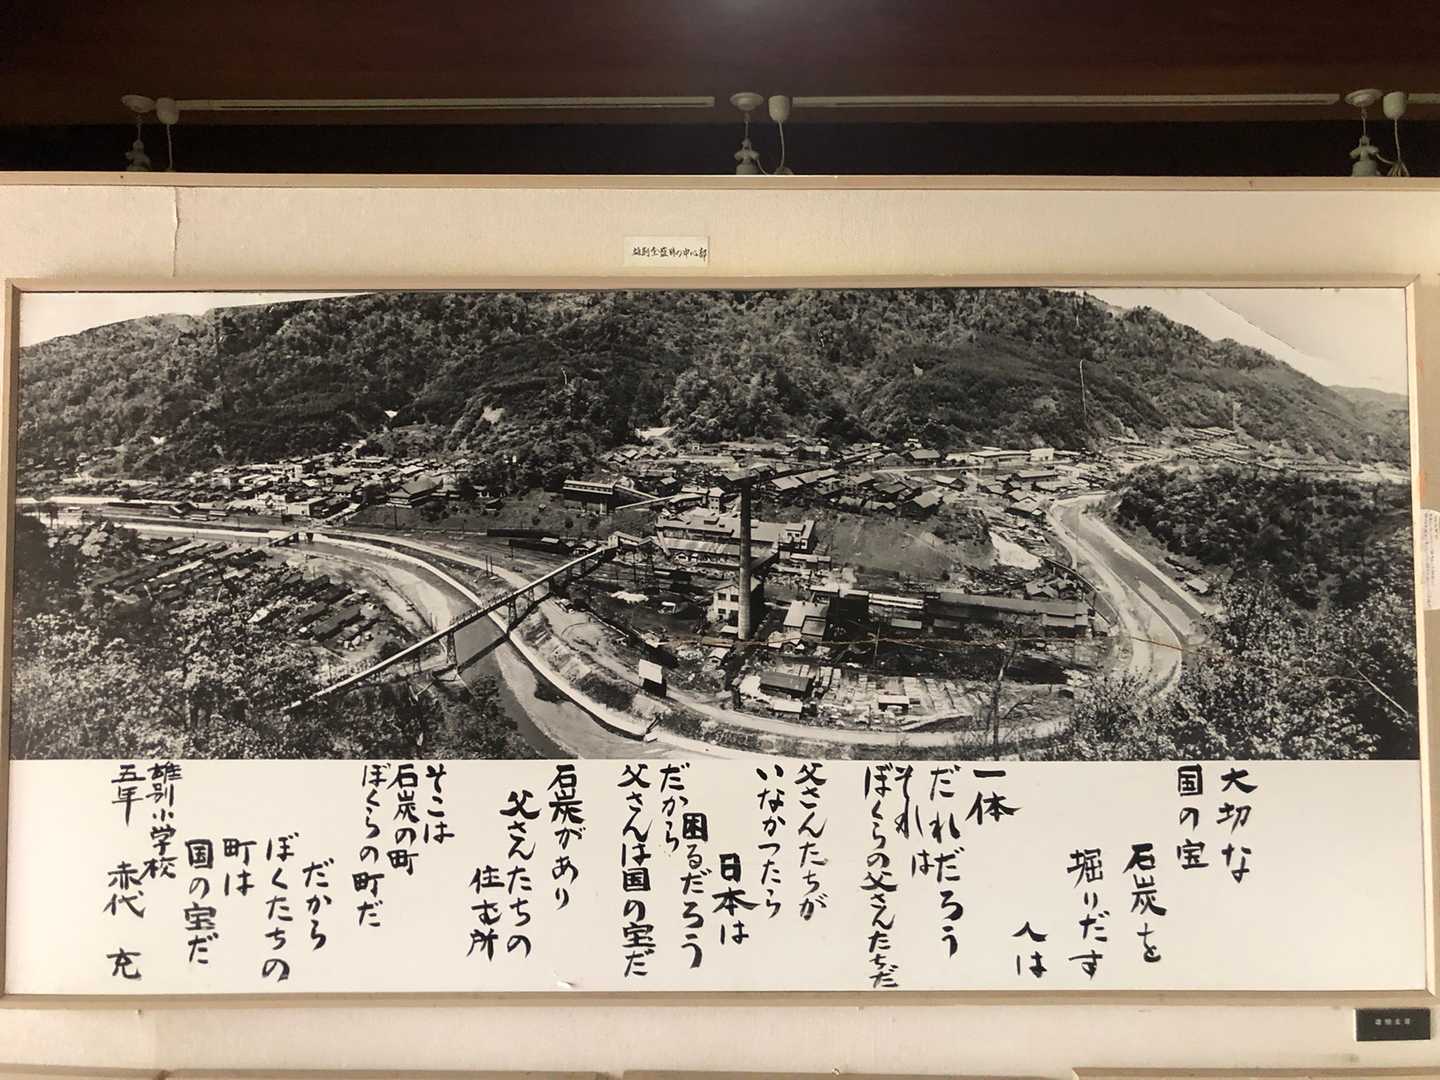 雄別全盛時の中心部
大切な
国の宝
石炭を
堀りだす
人は
一体
だれだろう
それは
ぼくらの父さんたちだ
父さんたちが
いなかつたら
日本は
困るだろう
だから
父さんは国の宝だ
石炭があり
父さんたちの
住む所
そこは
石炭の町
ぼくらの町だ
だから
ぼくたちの
町は
国の宝だ
雄別小学校
五年 赤代 充